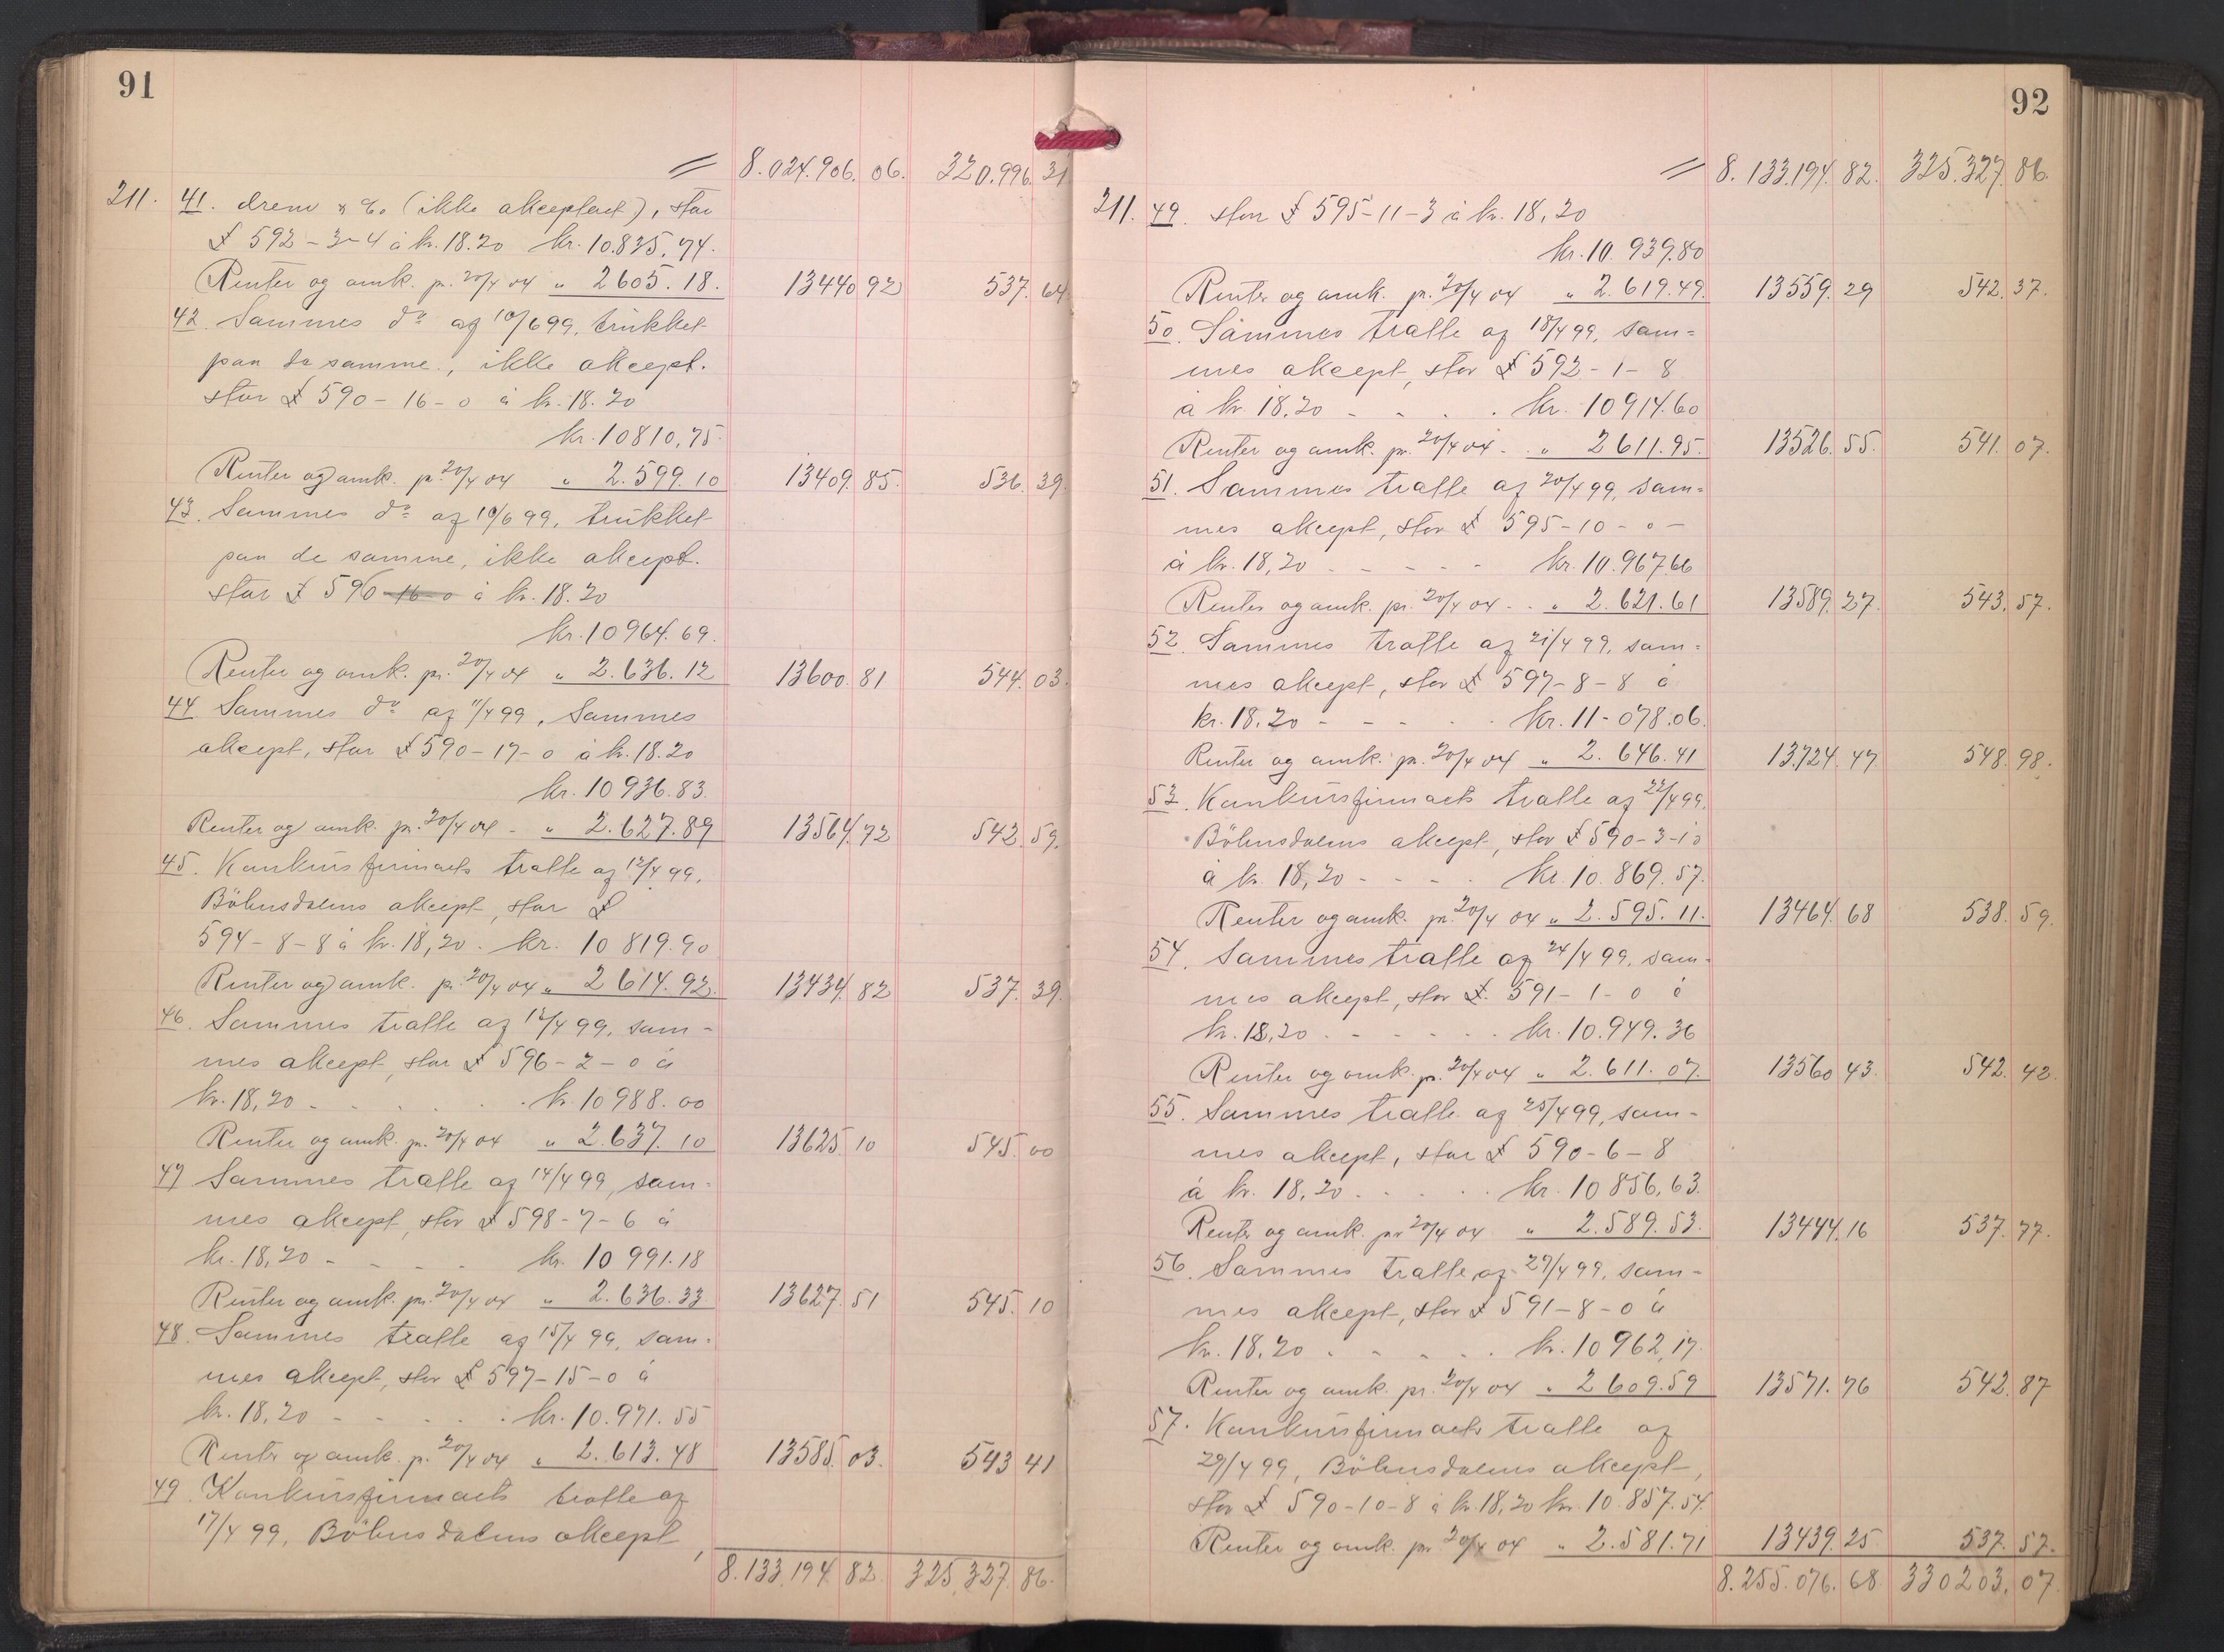 91
8.024.906.06. 320.996.31
211. 41. drew & Co (ikke akceptert), stor
£ 592-3-4 à kr. 18.20 kr. 10.835.74.
Renter og omk. pr. 20/4 04 " 2605.18. 13440 92 537.64
42. Sammes do af 10/6 99, trukket
paa de samme, ikke akcept.
stor £ 590-16-0 à kr. 18.20
kr. 10810,75.
Renter og omk. pr. 20/4 04 " 2.599.10 13409.85. 536.39.
43. Sammes do af 10/6 99, trukket
paa de samme, ikke akcept.
stor £ 590 16-0 à kr. 18.20
kr. 10964.69.
Renter og omk. pr. 20/4 04 " 2.636.12 13600.81 544.03.
44. Sammes do af 11/4 99, Sammes
akcept, stor £ 590-17-0 à kr. 18.20
kr. 10936.83.
Renter og omk. pr. 20/4 04 - " 2.627.89 13564.72 542.59.
45. Konkursfirmaets tratte af 12/4 99,
Böhnsdalens akcept, stor £
594-8-8 à kr. 18,20. kr. 10819.90
Renter og omk. pr. 20/4 04 " 2614.92. 13434.82 537.39.
46. Sammes tratte af 12/4 99, sam-
mes akcept, stor £ 596-2-0 à
kr. 18,20 - - - - kr. 10988.00
Renter og omk. pr. 20/4 04 " 2.637.10 13625.10 545.00
47 Sammes tratte af 14/4 99, sam-
mes akcept, stor £ 598-7-6 à
kr. 18,20 - - - - kr. 10991.18
Renter og omk. pr. 20/4 04 " 2.636.33 13627.51 545.10
48. Sammes tratte af 15/4 99, sam-
mes akcept, stor £ 597-15-0 à
kr. 18,20 - - - - kr. 10.971.55
Renter og omk. pr. 20/4 04 " 2.613.48 13585.03. 543 41
49. Konkursfirmaets tratte af
17/4 99, Böhnsdalens akcept,
8.133.194.82. 325.327.86.
92
8.133.194.82. 325.327.86.
211. 49. stor £ 595-11-3 à kr. 18,20
kr. 10.939.80
Renter og omk. pr. 20/4 04 " 2.619.49. 13559.29 542.37.
50. Sammes tratte af 18/4 99, sam-
mes akcept, stor £ 592-1-8
à kr. 18,20 - - - - kr. 10914.60
Renter og omk. pr. 20/4 04 - " 2611.95. 13526.55. 541.07.
51. Sammes tratte af 20/4 99, sam-
mes akcept, stor £ 595-10-0-
à kr. 18,20 - - - - - kr. 10.967.66
Renter og omk. pr. 20/4 04 - " 2.621.61 13589.27. 543.57.
52. Sammes tratte af 21/4 99, sam-
mes akcept, stor £ 597-8-8 à
kr. 18.20 - - - - kr. 11-078.06.
Renter og omk. pr. 20/4 04 " 2.646.41 13.724.47 548.98.
53. Konkursfirmaets tratte af 22/4 99.
Böhnsdalens akcept, stor £ 590-3-10
à kr. 18,20 - - - - kr. 10.869.57.
Renter og omk. pr. 20/4 04 " 2.595.11. 13464.68 538.59.
54. Sammes tratte af 24/4 99, sam-
mes akcept, stor £ 591-1-0 à
kr. 18,20 - - - - - kr. 10.949.36
Renter og omk. pr. 20/4 04 " 2.611.07. 13560.43. 542.42.
55. Sammes tratte af 25/4 99, sam-
mes akcept, stor £ 590-6-8
à kr. 18,20 - - - - kr. 10856,63.
Renter og omk. pr 20/4 04 " 2.589.53. 13444.16 537.77.
56. Sammes tratte af 27/4 99, sam-
mes akcept, stor £ 591-8-0 à
kr. 18.20 - - - - - kr. 10962,17.
Renter og omk. pr. 20/4 04 " 2609.59 13571.76 542.87
57. Konkursfirmaets tratte af
29/4 99, Böhnsdalens akcept,
stor £ 590-10-8 à kr. 18,20 kr. 10.857.54.
Renter og omk. pr. 20/4 04 " 2.581.71 13439.25. 537.57.
8.255.076.68. 330203.07